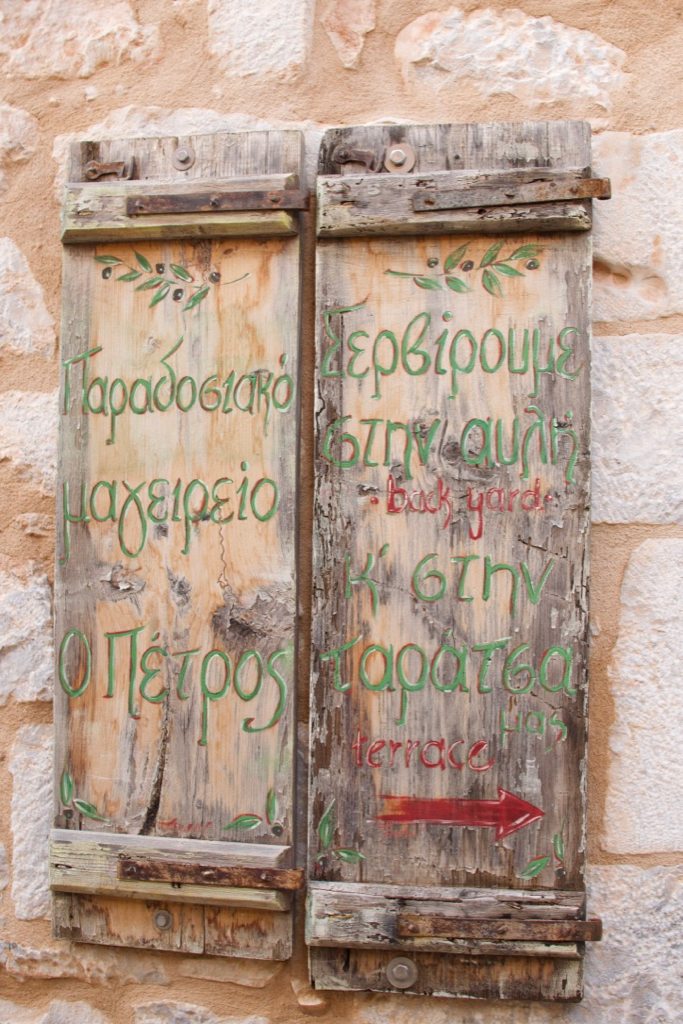 Παραδοσιακό
μαγειρείο
Ο Πέτρος
Σερβίρουμε
στην αυλή
back yard
κ' στην
ταράτσα
μας
terrace